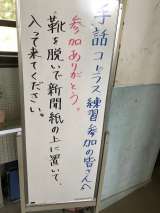 手話コーラス練習参加の皆さんへ
参加ありがとう。
靴を脱いで新聞紙の上に置いて、
入って来てください。